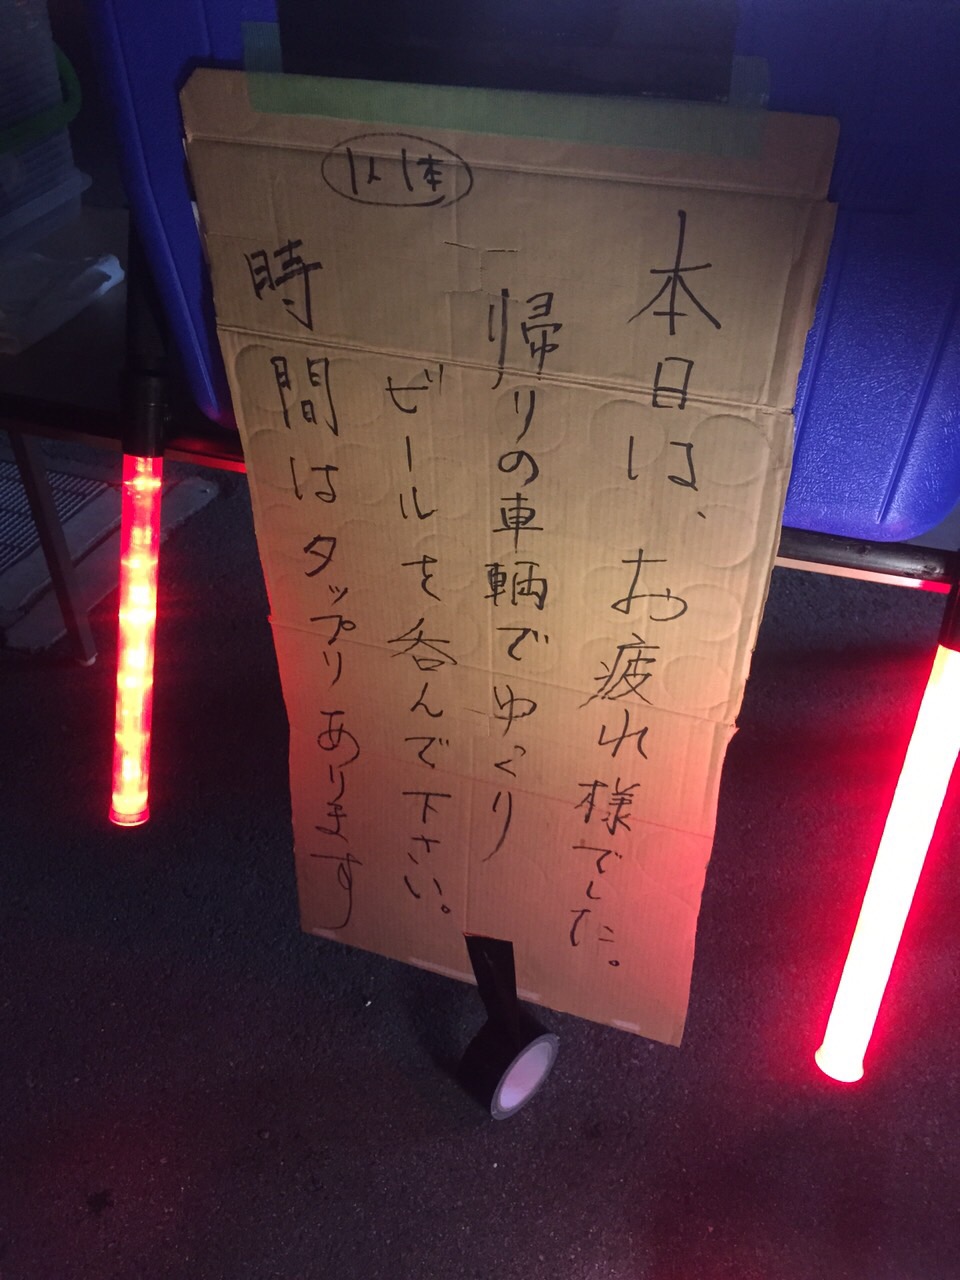 本日は、お疲れ様でした。
帰りの車輌でゆくり
ビールを呑んで下さい。
時間はタップリあります
1人1本